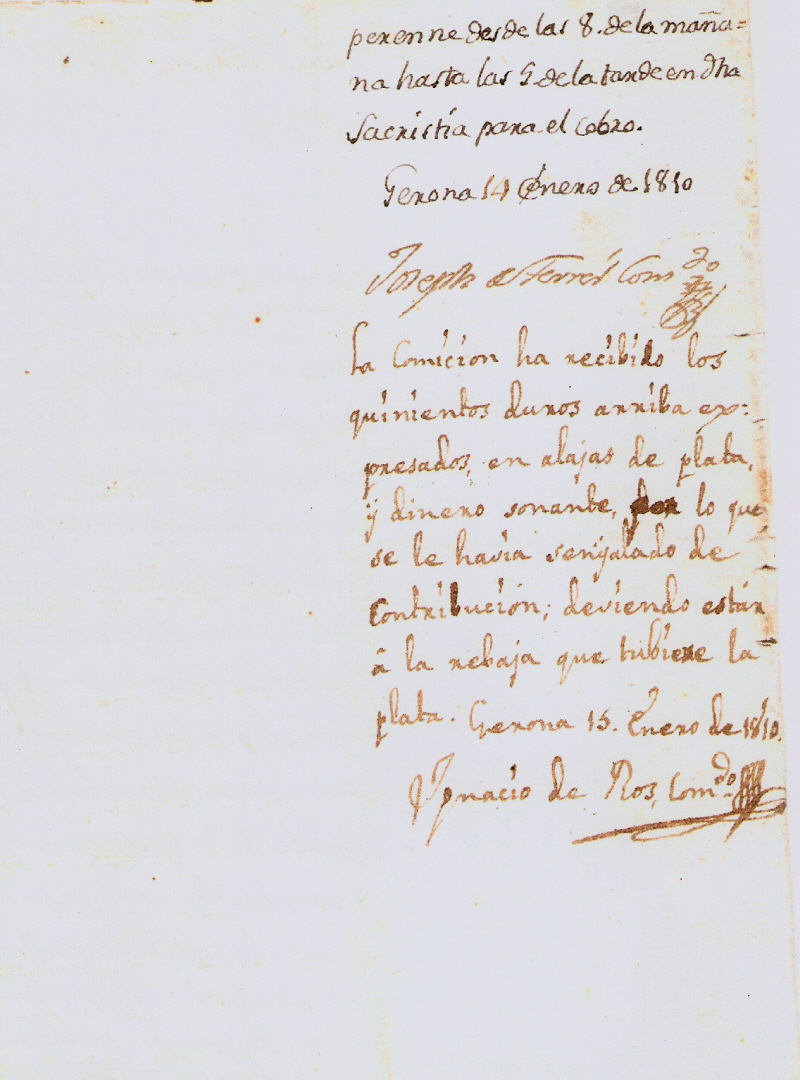 perenne desde las 8. de la maña=
na hasta las 5. de la tarde en dha
Sacristía para el Cobro.
Gerona 14 Enero de 1810
Joseph de Ferrer Com.do
La Comicion ha recibido los
quinientos duros arriba ex=
presados, en alajas de plata,
ÿ dinero sonante, por lo que
se le havia senÿalado de
Contribución; deviendo estár
â la rebaja que tubiere la
plata. Gerona 15. Enero de 1810.
Ygnacio de Ros, Com.do